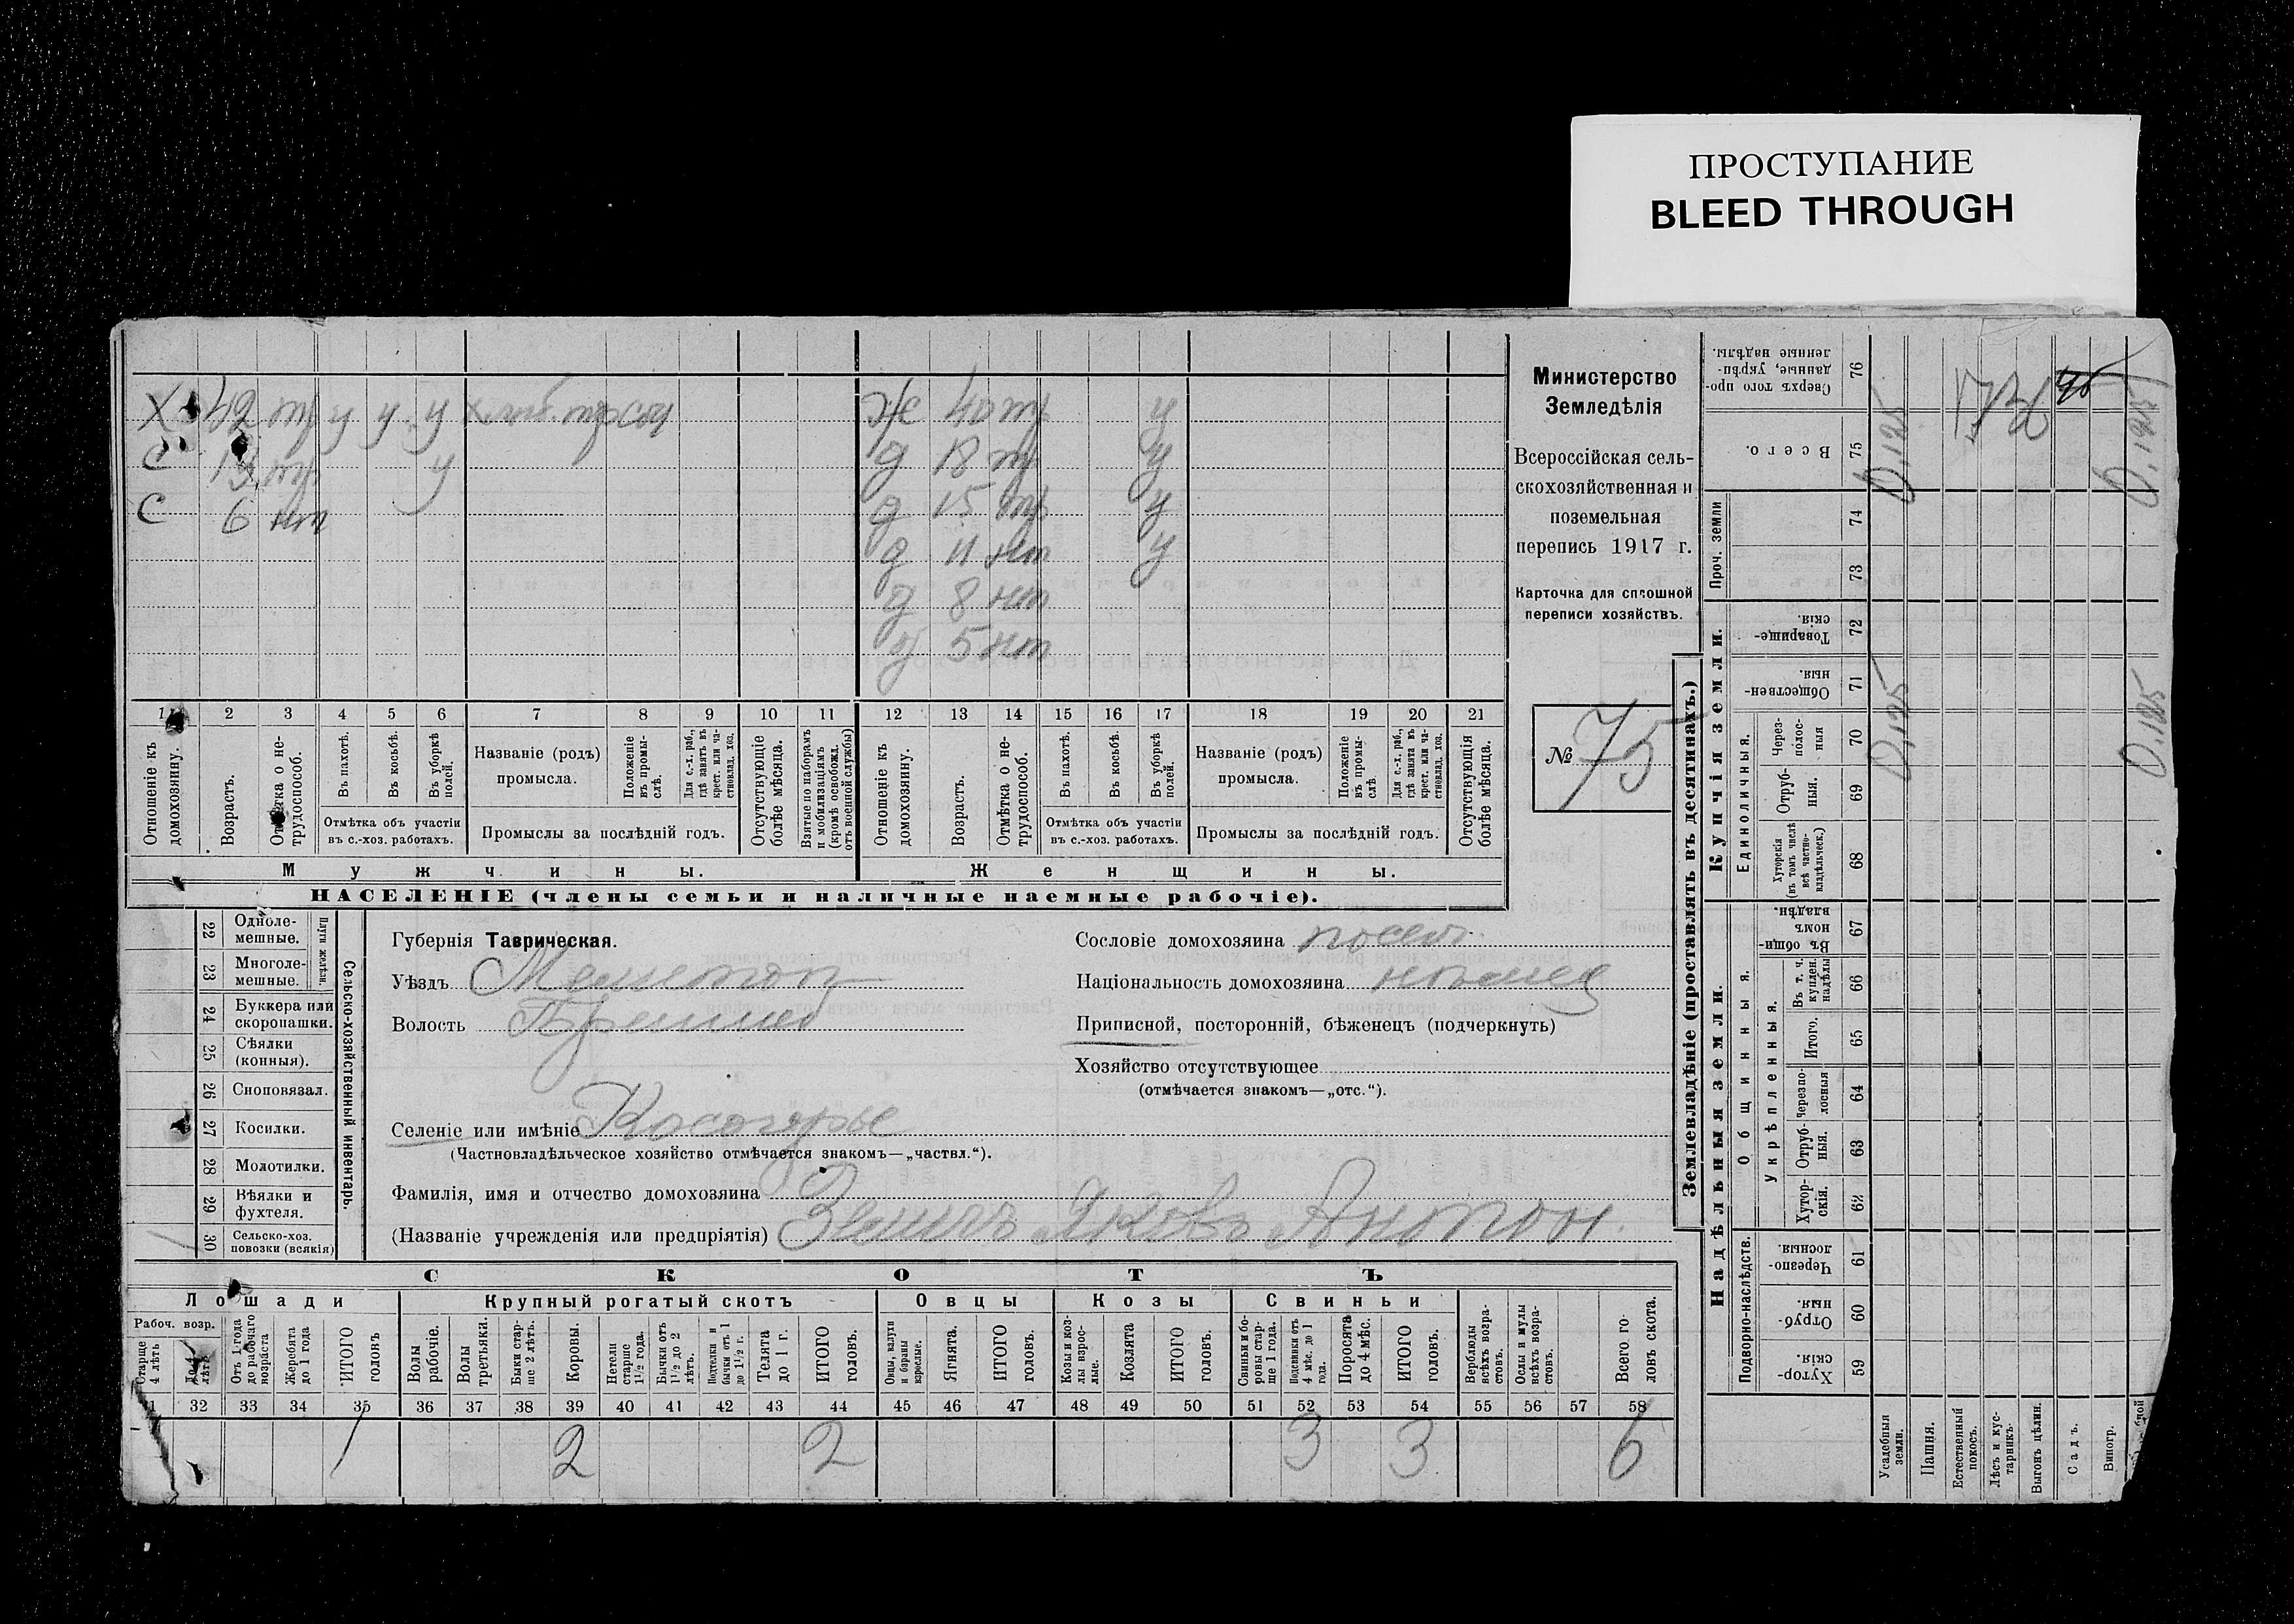 ПРОСТУПАНИЕ
BLEED THROUGH
Х 42 тр у у у
С 13 тр у
С 6 нт
Ж 40 тр у
д 18 тр у
д 15 тр у
д 11 нт у
д 8 нт
д 5 нт
1 2 3 4 5 6 7 8 9 10 11 12 13 14 15 16 17 18 19 20 21
Отношеніе къ домохозяину.
Возрастъ.
Отмѣтка о не-трудоспособ.
Въ пахотѣ.
Въ косьбѣ.
Въ уборкѣ полей.
Отмѣтка объ участіи въ с.-хоз. работахъ.
Названіе (родъ) промысла.
Положеніе въ промы-слѣ.
Для с.-х. раб., гдѣ занятъ въ крест. или ча-стновлад. хоз.
Промыслы за послѣдній годъ.
Отсутствующіе болѣе мѣсяца.
Взятые по наборамъ и мобилизаціямъ (кромѣ освобожд. отъ военной службы)
Отношеніе къ домохозяину.
Возрастъ.
Отмѣтка о не-трудоспособ.
Въ пахотѣ.
Въ косьбѣ.
Въ уборкѣ полей.
Отмѣтка объ участіи въ с.-хоз. работахъ.
Названіе (родъ) промысла.
Положеніе въ промы-слѣ.
Для с.-х. раб., гдѣ занята въ крест. или ча-стновлад. хоз.
Промыслы за послѣдній годъ.
Отсутствующія болѣе мѣсяца.
Мужчины.
Женщины.
НАСЕЛЕНІЕ (члены семьи и наличные наемные рабочіе).
Министерство
Земледѣлія
Всероссійская сель-
скохозяйственная и
поземельная
перепись 1917 г.
Карточка для сплошной
переписи хозяйствъ.
№ 75
22 Одноле-мешные.
23 Многоле-мешные.
Плуги желѣзн.
24 Буккера или скоропашки.
25 Сѣялки (конныя).
26 Сноповязал.
27 Косилки.
28 Молотилки.
29 Вѣялки и фухтеля.
30 Сельско-хоз. повозки (всякія)
Сельско-хозяйственный инвентарь.
Губернія Таврическая.
Уѣздъ Мелитоп
Волость
Селеніе или имѣніе Косогорье
(Частновладѣльческое хозяйство отмѣчается знакомъ—„частвл.“).
Фамилія, имя и отчество домохозяина
(Названіе учрежденія или предпріятія) Яковъ Антон.
Сословіе домохозяина посел.
Національность домохозяина нѣмец
Приписной, посторонній, бѣженецъ (подчеркнуть)
Хозяйство отсутствующее
(отмѣчается знакомъ—„отс.“).
СКОТЪ
Лошади
Крупный рогатый скотъ
Овцы
Козы
Свиньи
Рабоч. возр.
Старше 4 лѣтъ
До 4 лѣтъ
Отъ 1 года до рабочаго возраста
Жеребята до 1 года
ИТОГО головъ
Волы рабочіе.
Волы третьяки.
Быки стар-ше 2 лѣтъ.
Коровы.
Нетели старше 1½ года.
Бычки отъ 1½ до 2 лѣтъ.
Подтелки и бычки отъ 1 до 1½ г.
Телята до 1 г.
ИТОГО головъ.
Овцы, валухи и бараны взрослые.
Ягнята.
ИТОГО головъ.
Козы и коз-лы взрос-лые.
Козлята
ИТОГО головъ.
Свиньи и бо-ровы стар-ше 1 года.
Подсвинки отъ 4 мѣс. до 1 года.
Поросята до 4 мѣс.
ИТОГО головъ.
Верблюды всѣхъ возра-стовъ.
Ослы и мулы всѣхъ возра-стовъ.
Всего го-ловъ скота.
32 33 34 35 36 37 38 39 40 41 42 43 44 45 46 47 48 49 50 51 52 53 54 55 56 57 58
1 2 2 3 3 6
Землевладѣніе (проставлять въ десятинахъ.)
Надѣльныя земли.
Купчія земли.
Подворно-наслѣдств.
Общинныя.
Укрѣпленныя.
Единоличныя.
Проч. земли
Хутор-скія. 59
Отруб-ныя. 60
Черезпо-лосныя 61
Хутор-скія. 62
Отруб-ныя. 63
Черезпо-лосныя 64
Итого. 65
Въ т. ч. куплен. надѣлы 66
Въ общи-номъ владѣн. 67
Хуторскія (въ томъ числѣ всѣ частно-владѣльческ.) 68
Отруб-ныя. 69
Через-полос-ныя 70
Обществен-ныя. 71
Товарище-скія. 72
73
74
Всего. 75
Сверхъ того про-данные, укрѣп-ленные надѣлы. 76
Усадебныя земли.
Пашня.
Естественный покосъ.
Лѣсъ и кус-тарникъ.
Выгонъ цѣлин.
Садъ.
Виногр.
0,125
0,125
0,125
0,125